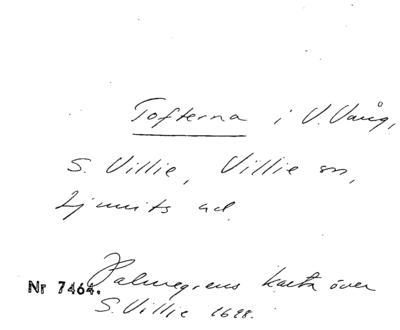 Tofterna i V. Vång,
S. Villie, Villie sn,
Ljunits hd.
Nr 7464.
Palmgrens karta över
S. Villie 1688.